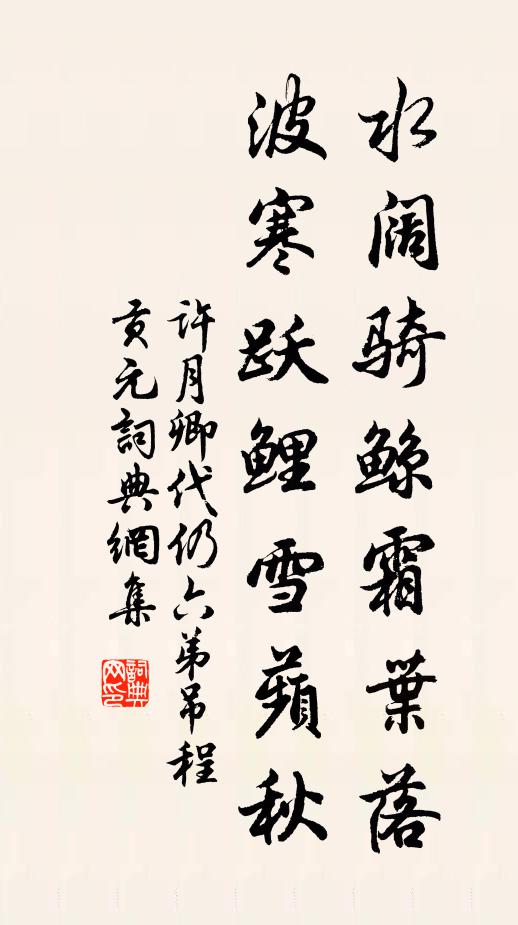 水阔骑鲸霜葉落
波寒跃鲤雪蘋秋
许月卿代仍六弟吊程
贡元詞典網集
詞典网印